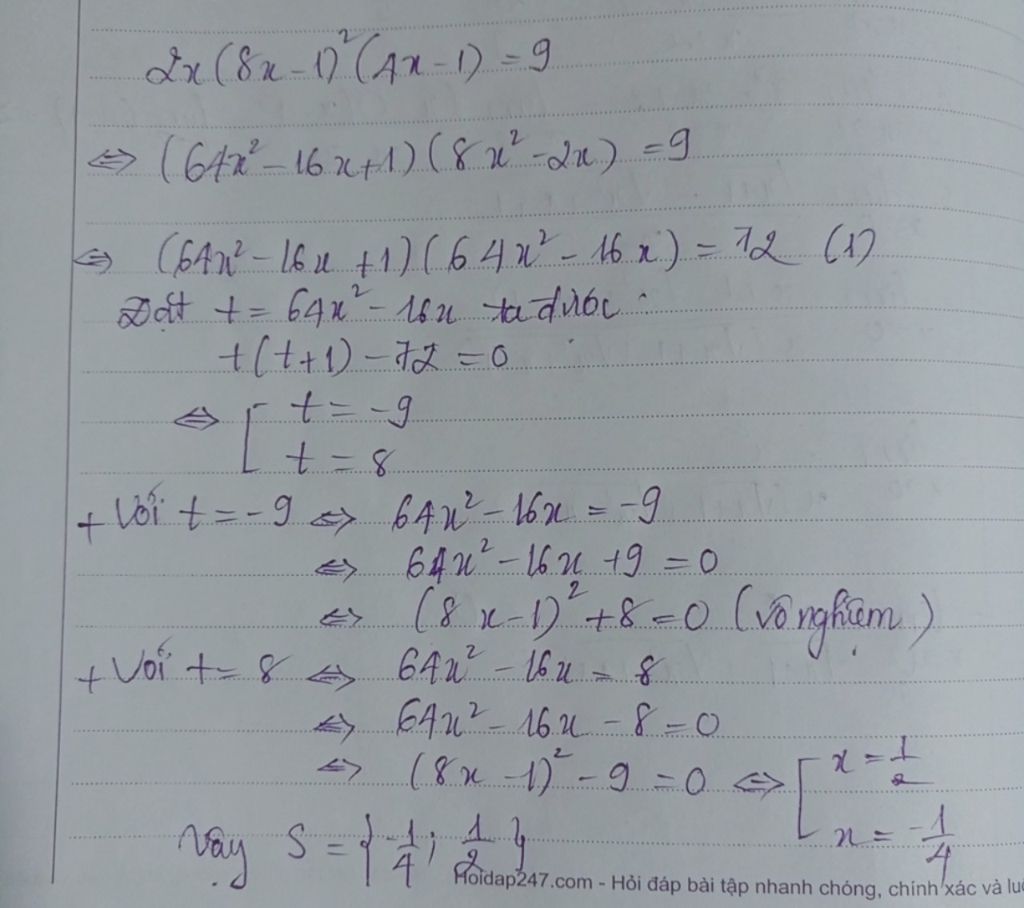 2x(8x-1)²(4x-1) = 9
⇔ (64x²-16x+1)(8x²-2x) = 9
⇔ (64x²-16x+1)(64x²-16x) = 72 (1)
Đặt t = 64x²-16x ta được :
t(t+1) - 72 = 0
⇔ [ t = -9
t = 8
+ Với t = -9 ⇔ 64x²-16x = -9
⇔ 64x²-16x+9 = 0
⇔ (8x-1)²+8=0 (vô nghiệm)
+ Với t = 8 ⇔ 64x²-16x = 8
⇔ 64x²-16x-8=0
⇔ (8x-1)²-9=0 ⇔ [ x = 1/2
x = -1/4
Vậy S = {-1/4; 1/2}
Hoidap247.com - Hỏi đáp bài tập nhanh chóng, chính xác và